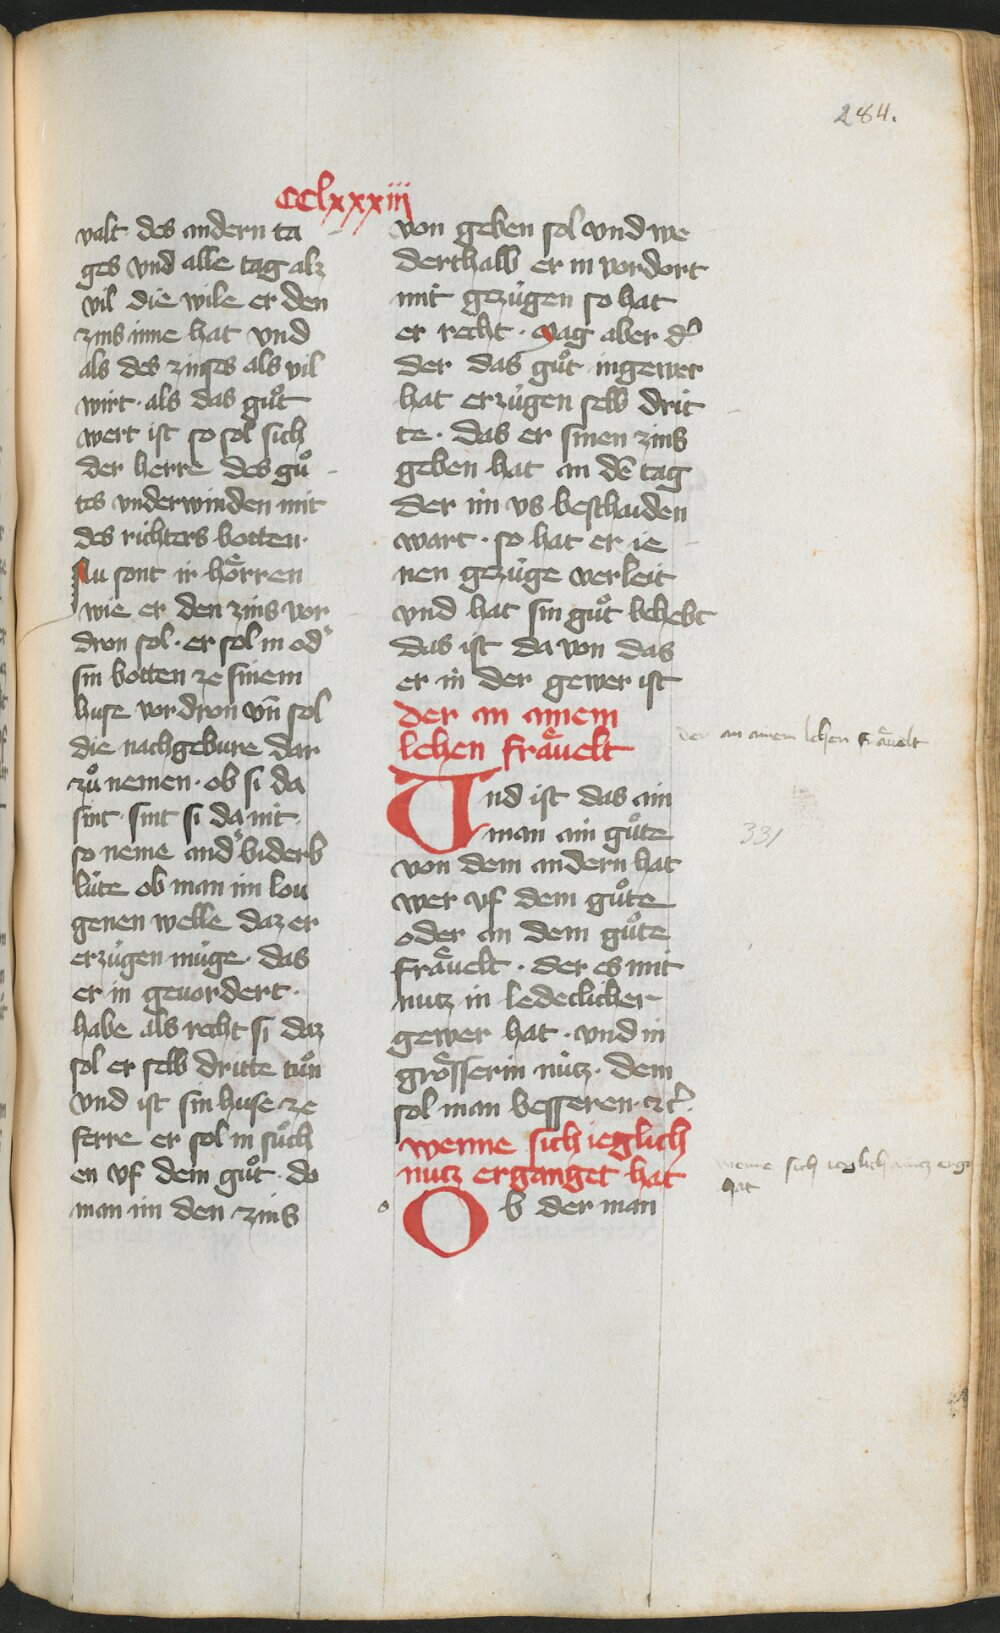 284.
CClxxxiij
valt des andern ta
ges vnd alle tag alz
vil die wile er den
zins inne hat vnd
als des zinses als vil
wirt· als das guͦt
wert ist so sol sich
der herre des guͦ
tes vnderwinden mit
des richters botten·
Nu sont ir hoͤrren
wie er den zins vor
dron sol· er sol in od'
sin botten ze sinem
huse vordron vn̄ sol
die nachgebure dar
zuͦ nemen· ob si da
sint· sint si da nit·
so neme and' biderb
lúte ob man im lou
genen welle daz er
erzúgen múge· das
er in geuordert·
habe als recht si daz
sol er selb dritte tuͦn
vnd ist sin huse ze
ferre er sol in suͦch
en vf dem guͦt· do
man im den zins
von geben sol vnd we
derthalb er in vordort
mit gezúgen so hat
er recht· Mag aber d'
der das guͦt ingewer
hat erzúgen selb drit
te· das er sinen zins
geben hat an dē tag
der im vs beschaiden
wart· so hat er ie
nen gezúge verleit
vnd hat sin guͦt behebt
das ist da von das
er in der gewer ist
der an ainem
lehen fraͤuelt
Vnd ist das ain
man ain guͦte
von dem andern hat
wer vf dem guͦte
oder an dem guͦte
fraͤuelt· der es mit
nutz in ledeclicher
gewer hat· vnd in
groͤsserin nútz· dem
sol man besseren· ⁊c̄·
wenne sich ieglich
nutz erganget hat
o Ob der man
der an ainem lehen fraͤuelt
331
wenne sich ieglich nutz erga
hat